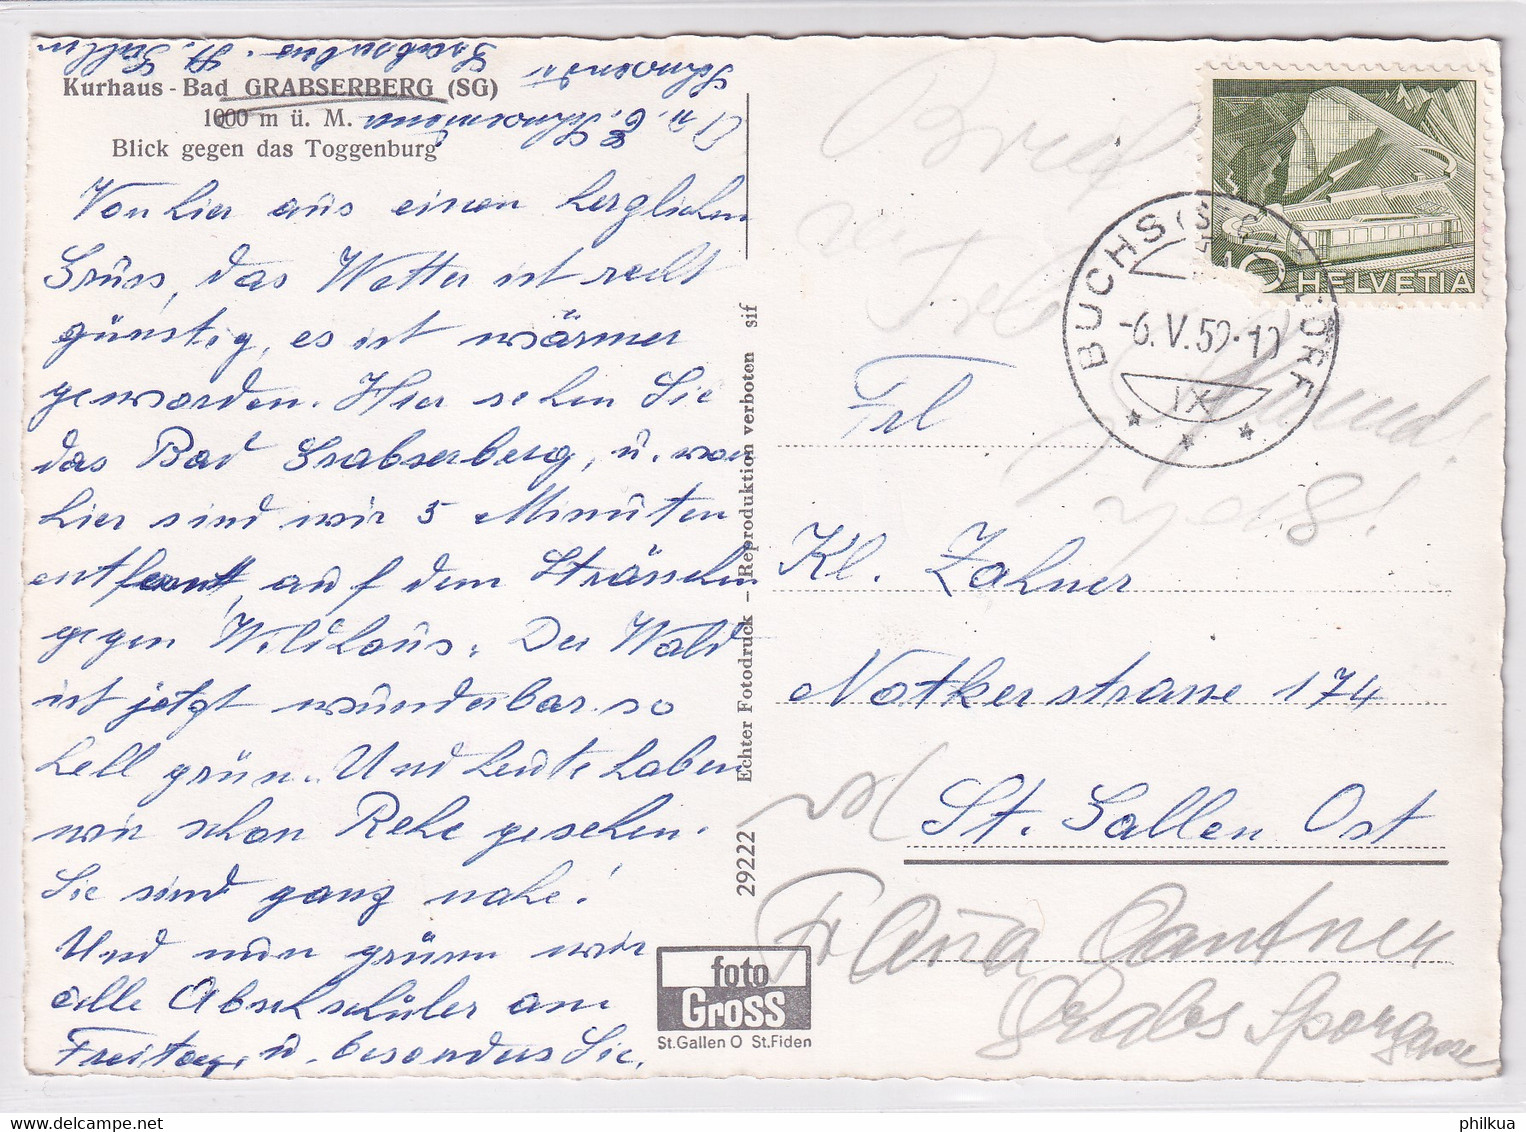 Kurhaus - Bad GRABSERBERG (SG)
1000 m ü. M.
Blick gegen das Toggenburg
Von hier aus einen herzlichen
Grüss, das Wetter ist recht
günstig, es ist wärmer
geworden. Hier sehen Sie
das Bad Grabserberg, u. von
hier sind wir 5 Minuten
entfernt, auf dem Strässchen
gegen Wildhaus. Der Wald
ist jetzt wunderbar so
hell grün. Und heute haben
wir schon Rehe gesehen.
Sie sind ganz nahe!
Und nun grüssen wir
alle Abschschüler am
Freitag, u. besonders Sie.
A. u. E. Schwendener
Grabserberg. St. Gallen
29222 Echter Fotodruck – Reproduktion verboten sif
foto
Gross
St.Gallen O St.Fiden
HELVETIA
BUCHS (ST. G.)
-6.V.59-10
IX
Frl
Kl. Zahner
Notkerstrasse 174
St. Gallen Ost
Gantner
Grabs Sporgasse
philkua